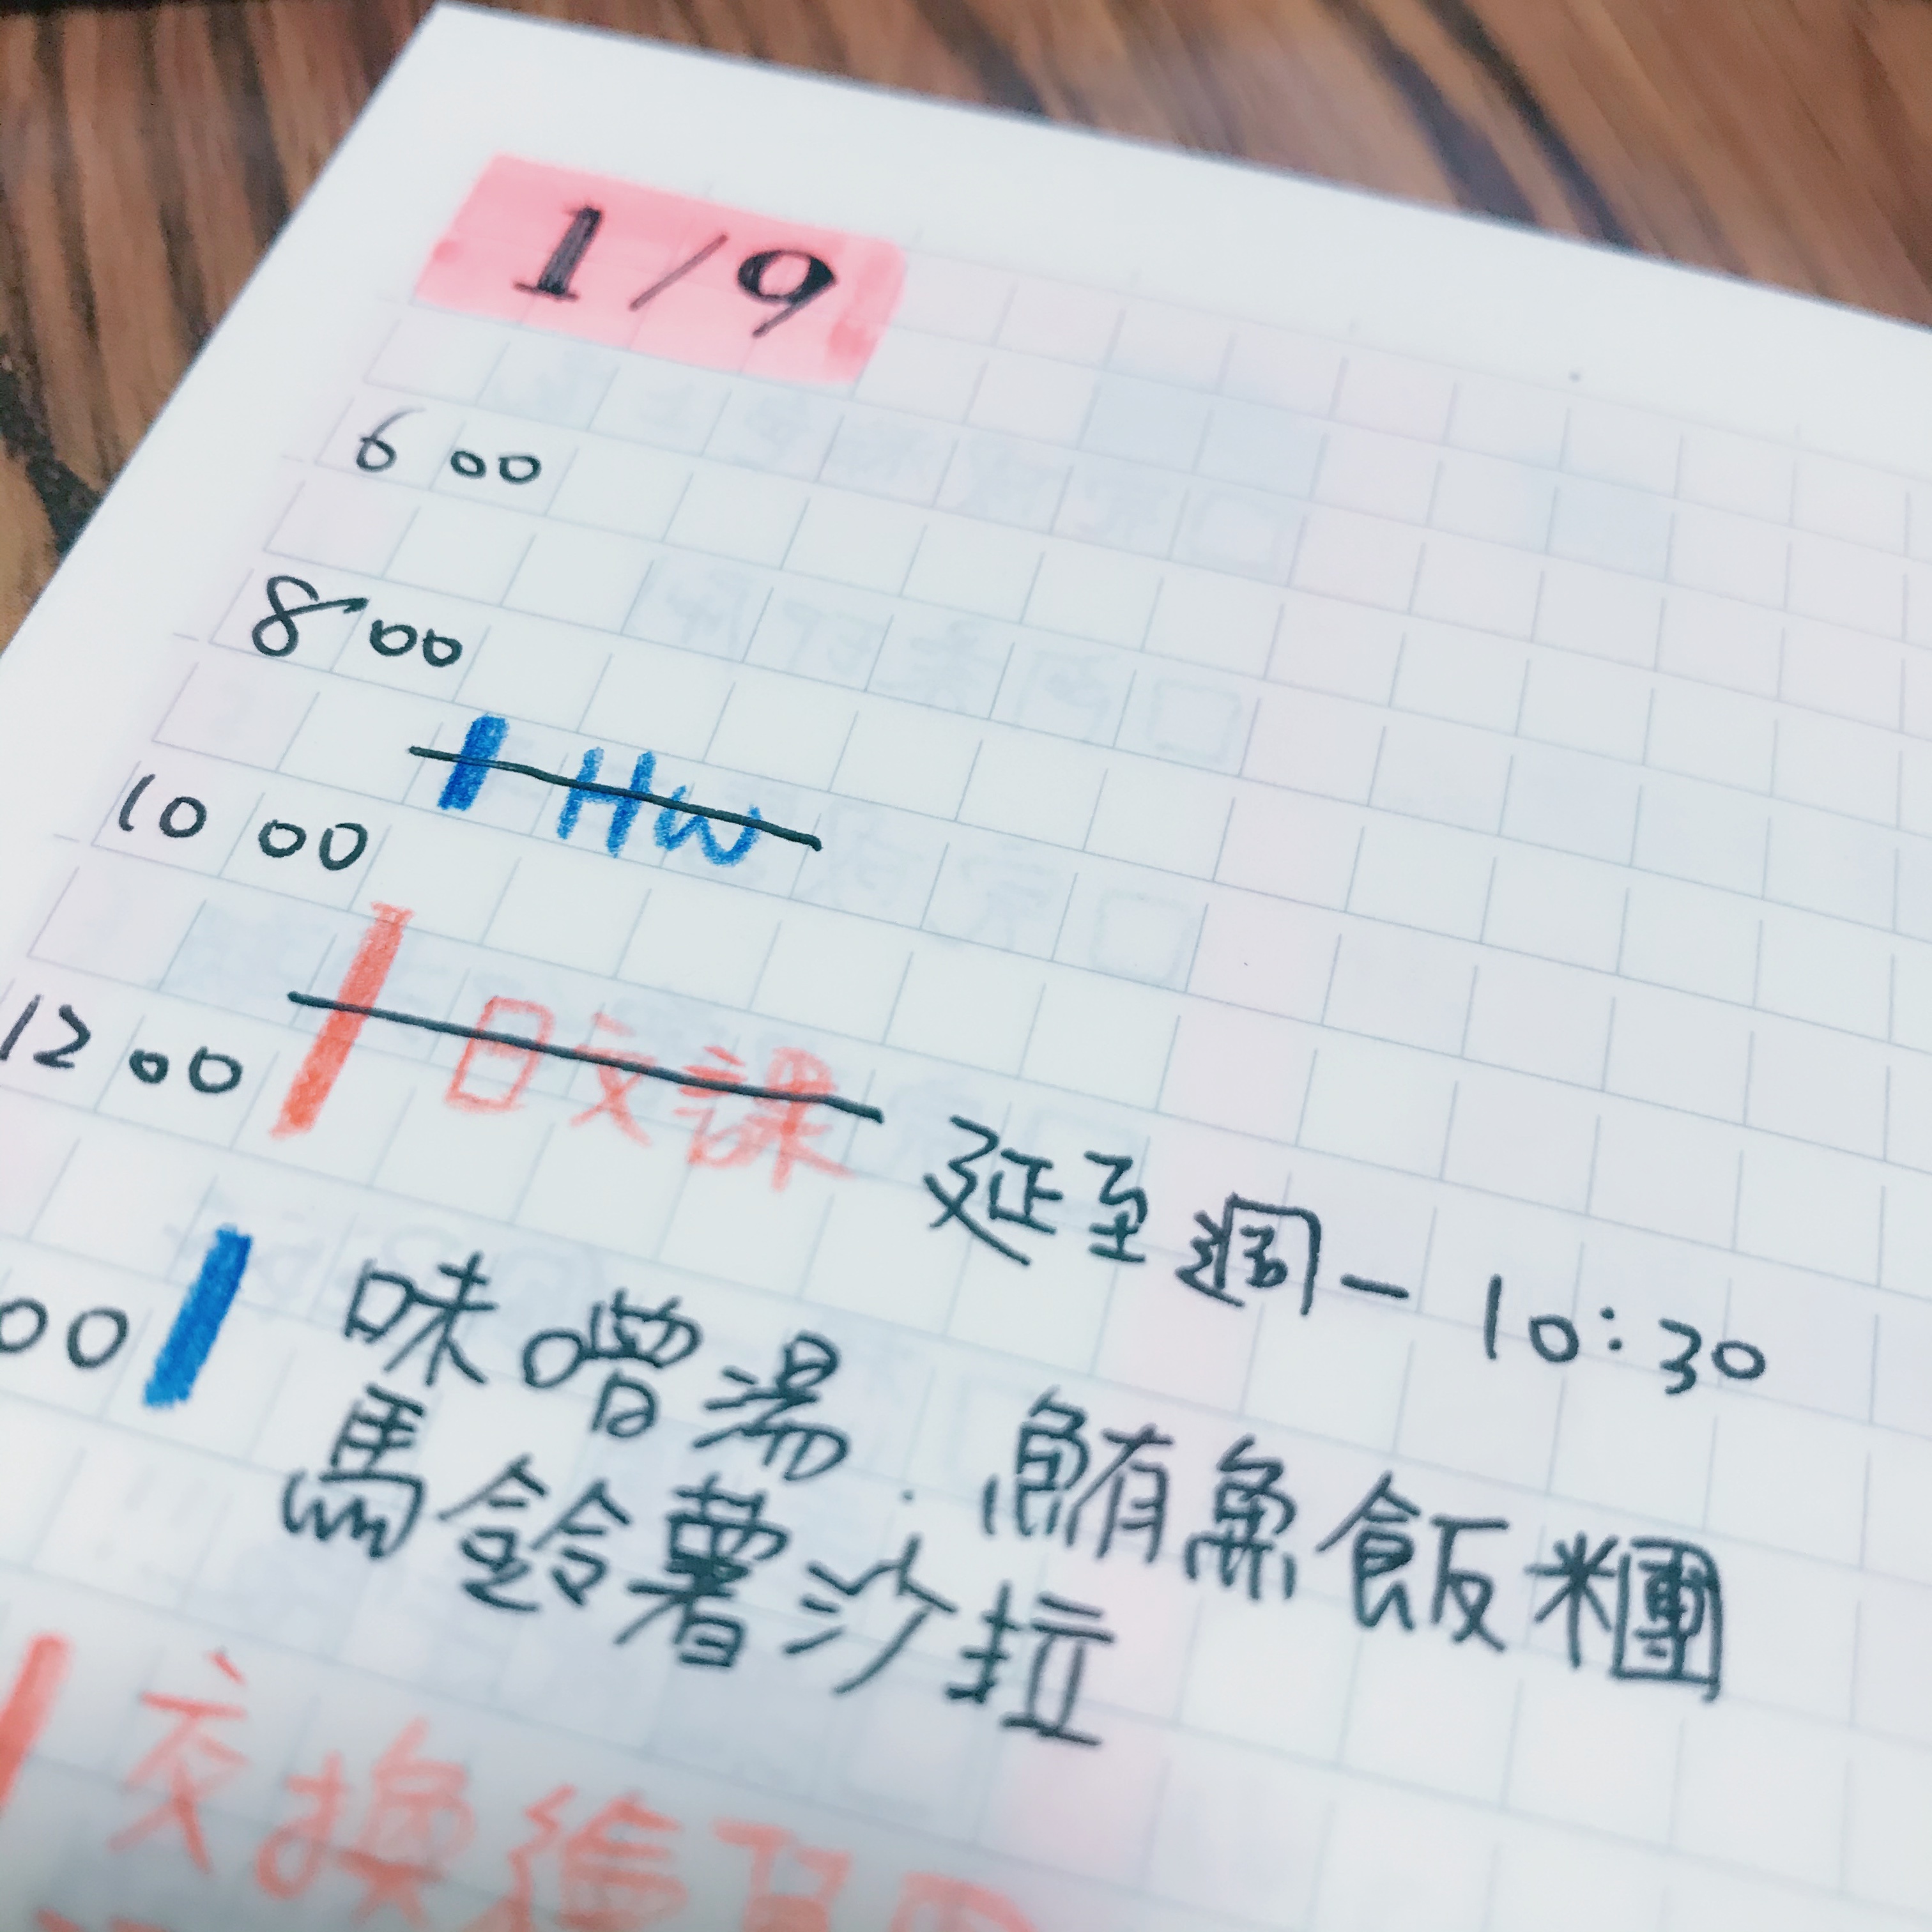 1/9
6 00
8 00
HW
10 00
日文課
12 00
延至週一 10:30
00
味噌湯．鮪魚飯糰
馬鈴薯沙拉
交換